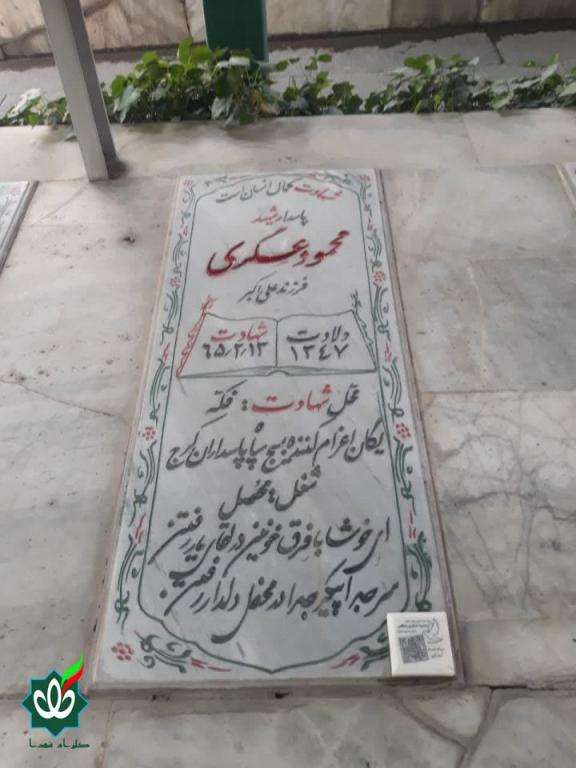 شهادت کمال انسان است
پاسدار شهید
محمود عسگری
فرزند علی اکبر
ولادت
۱۳۴۷
شهادت
۶۵/۲/۱۳
محل شهادت: فکه
یگان اعزام کننده بسیج سپاه پاسداران کرج
شغل: محصل
ای خوشا با فرق خونین در لقای یار رفتن
سر جدا پیکر جدا در محفل دلدار رفتن
گلزار شهدا